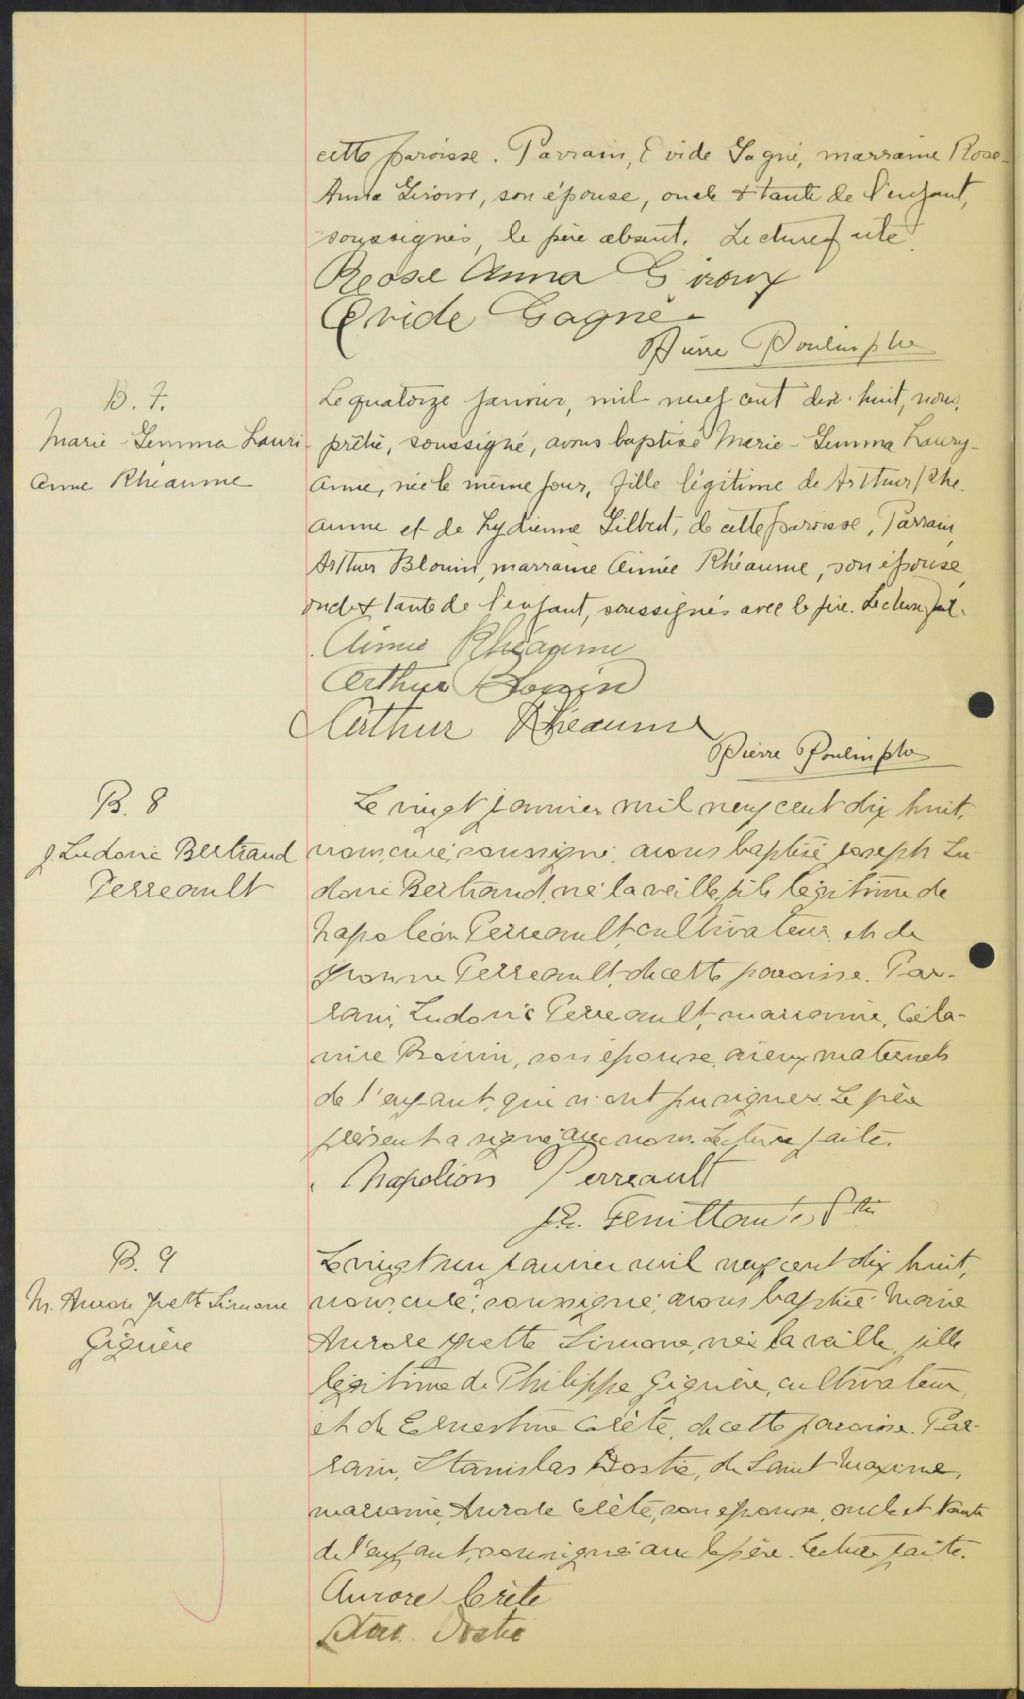 cette paroisse. Parrain, Evide Gagné, marraine Rose-
Anna Giroux, son épouse, oncle & tante de l'enfant,
soussignés, le père absent. Lecture faite.
Rose Anna Giroux
Evide Gagné
Pierre Poulin ptre
B. 7.
Marie-Gemma Lauri-
Anne Rhéaume
Le quatorze janvier, mil neuf cent dix-huit, nous,
prêtre, soussigné, avons baptisé Marie-Gemma Laury-
Anne, née le même jour, fille légitime de Arthur Rhé-
aume et de Lydienne Gilbert, de cette paroisse, Parrain,
Arthur Blouin, marraine Aimée Rhéaume, son épouse,
oncle & tante de l'enfant, soussignés avec le père. Lecture fait.
Aimée Rhéaume
Arthur Blouin
Arthur Rhéaume
Pierre Poulin ptre
B. 8
J. Ludovic Bertrand
Perreault
Le vingt janvier mil neuf cent dix huit,
nous, curé, soussigné, avons baptisé Joseph Lu-
dovic Bertrand, né la veille, fils légitime de
Napoléon Perreault, cultivateur, et de
Yvonne Perreault, de cette paroisse. Par-
rain, Ludovic Perreault, marraine, Céla-
nire Boivin, son épouse, aïeux maternels
de l'enfant, qui n'ont pu signer. Le père
présent a signé avec nous. Lecture faite.
Napoléon Perreault
Feuiltault, Ptre
B. 9
M. Aurore Yvette Simone
Giguère
Le vingt un janvier mil neuf cent dix huit,
nous, curé, soussigné, avons baptisé Marie
Aurore Yvette Simone, née la veille, fille
légitime de Philippe Giguère, cultivateur,
et de Ernestine Crête, de cette paroisse. Par-
rain, Stanislas Dostie, de Saint Maxime,
marraine, Aurore Crête, son épouse, oncle et tante
de l'enfant, soussignés avec le père. Lecture faite.
Aurore Crête
Stan. Dostie